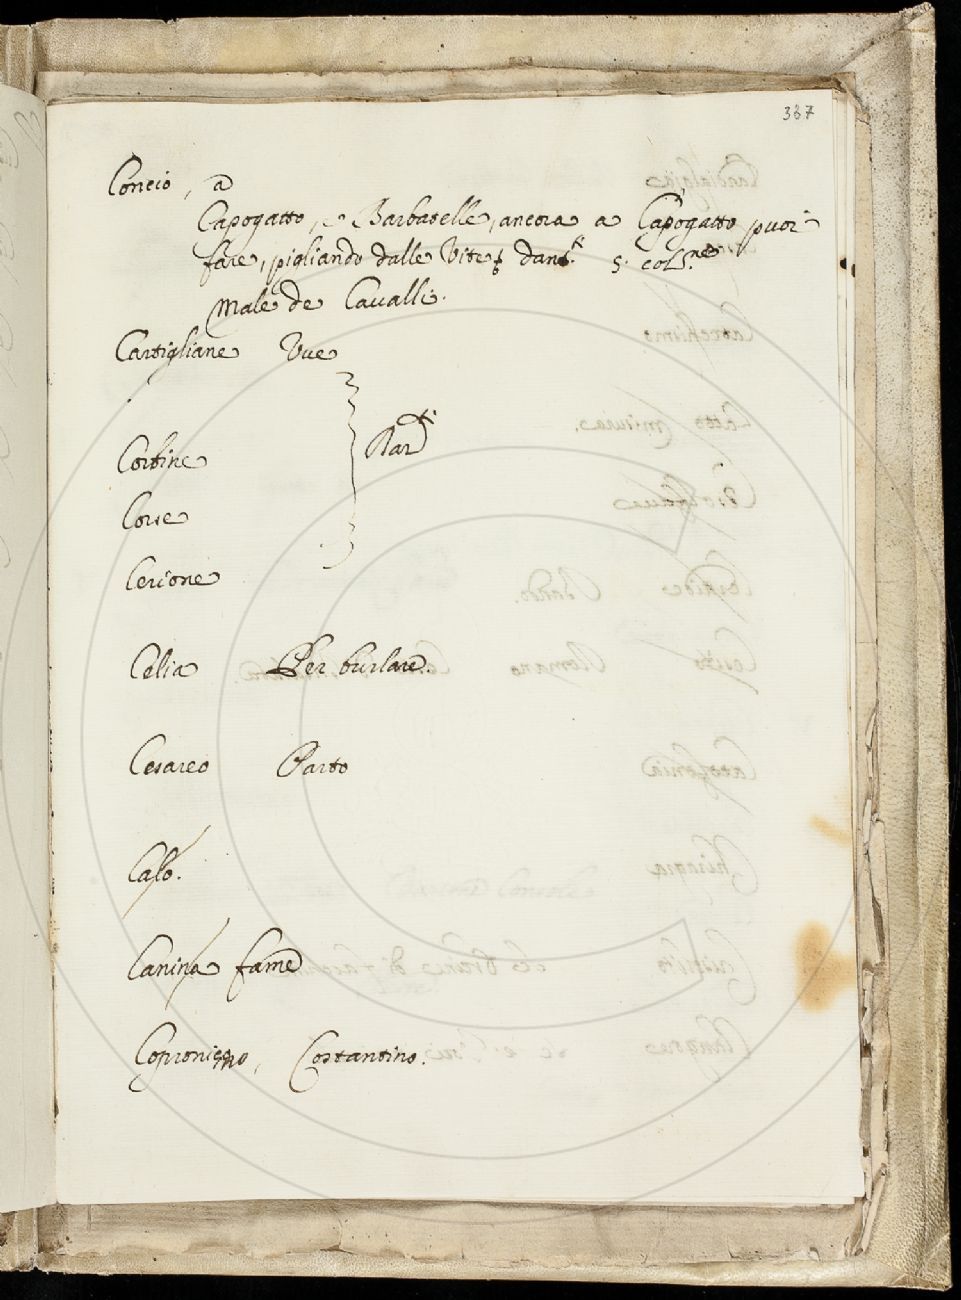 337
Concio, a
Capogatto, e Barbatelle, ancora a Capogatto puoi
fare, pigliando dalle Vite 5. col.ne
Male de Cavalli.
Cartigliane Uve
Corbine
Corse
Cerione
Celia Per burlare.
Cesareo Parto
Caso.
Canina fame
Copronico, Costantino.